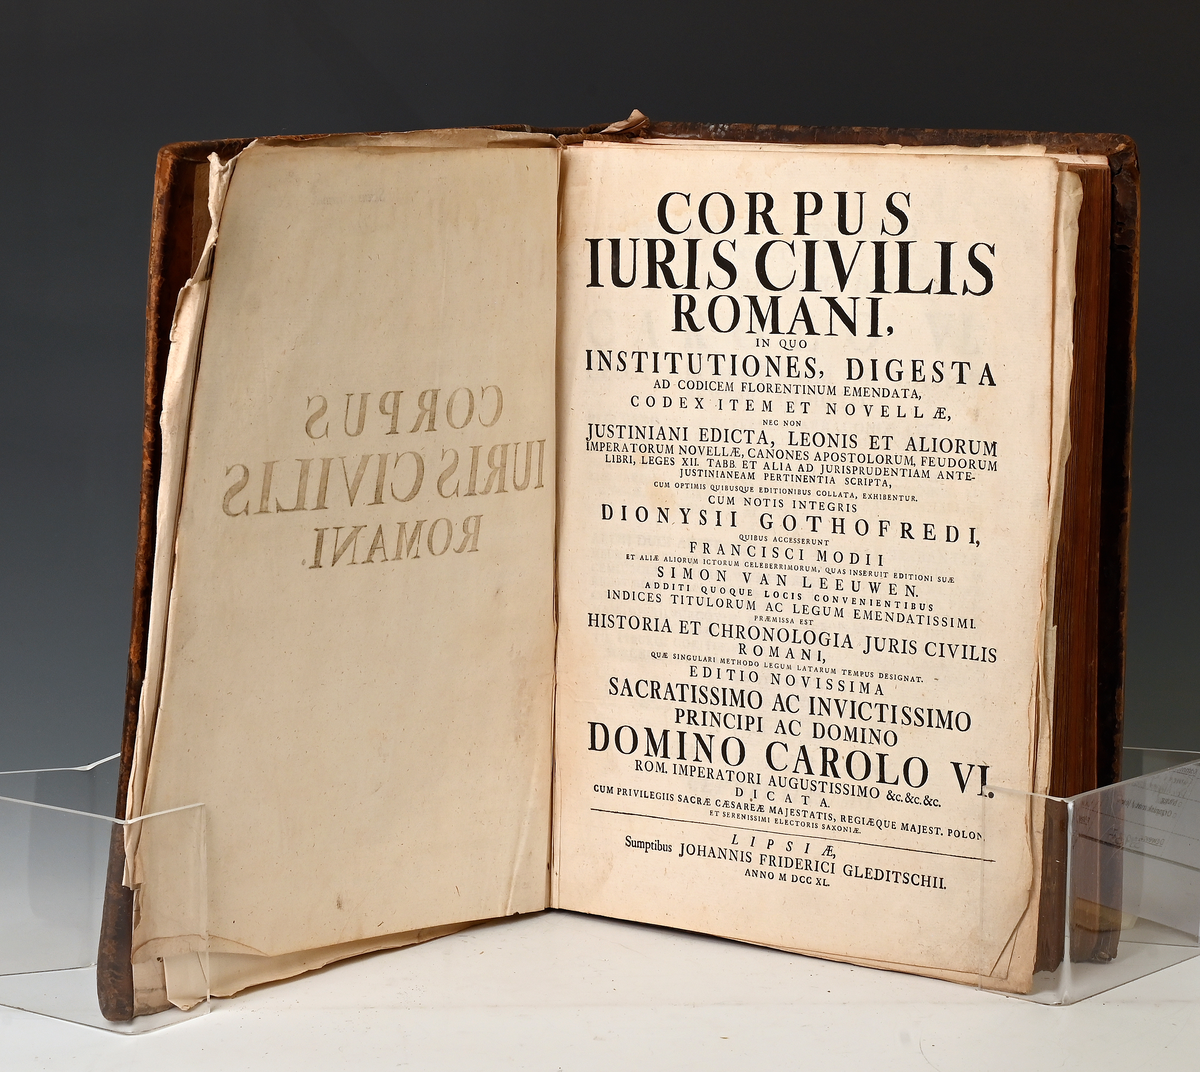 CORPUS
IURIS CIVILIS
ROMANI.
CORPUS
IURIS CIVILIS
ROMANI,
IN QUO
INSTITUTIONES, DIGESTA
AD CODICEM FLORENTINUM EMENDATA,
CODEX ITEM ET NOVELLÆ,
NEC NON
JUSTINIANI EDICTA, LEONIS ET ALIORUM
IMPERATORUM NOVELLÆ, CANONES APOSTOLORUM, FEUDORUM
LIBRI, LEGES XII. TABB. ET ALIA AD JURISPRUDENTIAM ANTE-
JUSTINIANEAM PERTINENTIA SCRIPTA,
CUM OPTIMIS QUIBUSQUE EDITIONIBUS COLLATA, EXHIBENTUR.
CUM NOTIS INTEGRIS
DIONYSII GOTHOFREDI,
QUIBUS ACCESSERUNT
FRANCISCI MODII
ET ALIÆ ALIORUM ICTORUM CELEBERRIMORUM, QUAS INSERUIT EDITIONI SUÆ
SIMON VAN LEEUWEN.
ADDITI QUOQUE LOCIS CONVENIENTIBUS
INDICES TITULORUM AC LEGUM EMENDATISSIMI.
PRÆMISSA EST
HISTORIA ET CHRONOLOGIA JURIS CIVILIS
ROMANI,
QUÆ SINGULARI METHODO LEGUM LATARUM TEMPUS DESIGNAT.
EDITIO NOVISSIMA
SACRATISSIMO AC INVICTISSIMO
PRINCIPI AC DOMINO
DOMINO CAROLO VI.
ROM. IMPERATORI AUGUSTISSIMO &c.&c.&c.
DICATA.
CUM PRIVILEGIIS SACRÆ CÆSAREÆ MAJESTATIS, REGIÆQUE MAJEST. POLON.
ET SERENISSIMI ELECTORIS SAXONIÆ.
LIPSIÆ,
Sumptibus JOHANNIS FRIDERICI GLEDITSCHII.
ANNO M DCC XL.